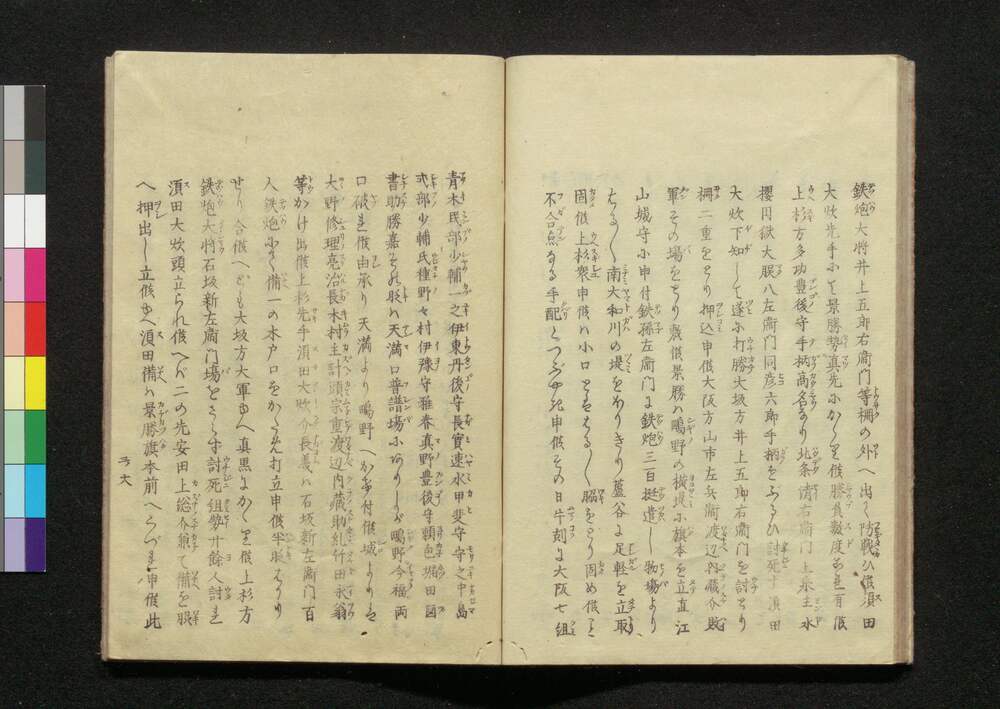 鉄炮大将井上五郎右衛門等柵の外へ出て防戦ひ候須田
大炊先手小て景勝勢真先にかゝり候勝負数度ありて有候
上杉方多功豊後守手柄高名あり北条清右衛門上泉主水
櫻田獄大股八左衛門同彦六郎手柄をふるひ討死す須田
大炊下知して遂に打勝大坂方井上五郎右衛門を討とり
柵二重をとり押込申候大阪方山市左兵衛渡辺内蔵介敗
軍その場をとり敷候景勝ハ鴫野の横堤に旗本を立直江
山城守小申付鉄孫左衛門に鉄炮三百挺遣し物場より
はるく南大和川の堤をほりきり蘆谷に足軽を立取
固候上杉衆申候ハ小口をはるく脇をとり固め候こと
不合点なる手配とつぶやき申候その日午刻に大阪七組
青木民部少輔一之伊東丹後守長實速水甲斐守守之中島
式部少輔氏種野々村伊豫守雅春真野豊後守頼包堀田図
書助勝嘉それ〳〵ハ天満口普譜場にありしが鴫野今福両
口破れ候由承り天満より鴫野へかけ付候城よりも
大野修理亮治長木村主計頭宗重渡辺内蔵助糺竹田永翁
等かけ出候上杉先手須田大炊介長義ハ石坂新左衛門百
人鉄炮にて備一の木戸口をかため打立申候半時はかり
せり合候へども大坂方大軍ゆへ真黒にかゝり候上杉方
鉄炮大将石坂新左衛門場をさらす討死組勢廿餘人討れ
須田大炊頭立られ候へバ二の先安田上総介順て備を脇
へ押出し立候ゆへ須田備ハ景勝旗本前へくづれ申候此
ヲ六